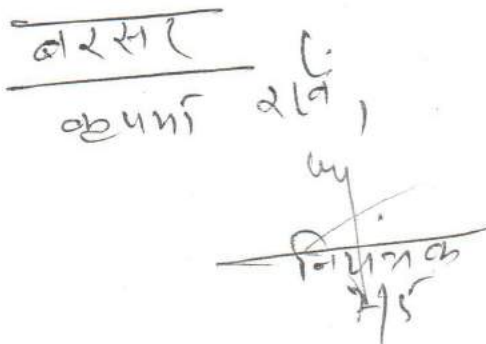 बरसर
कृपया रखें,
नियंत्रक
7/5